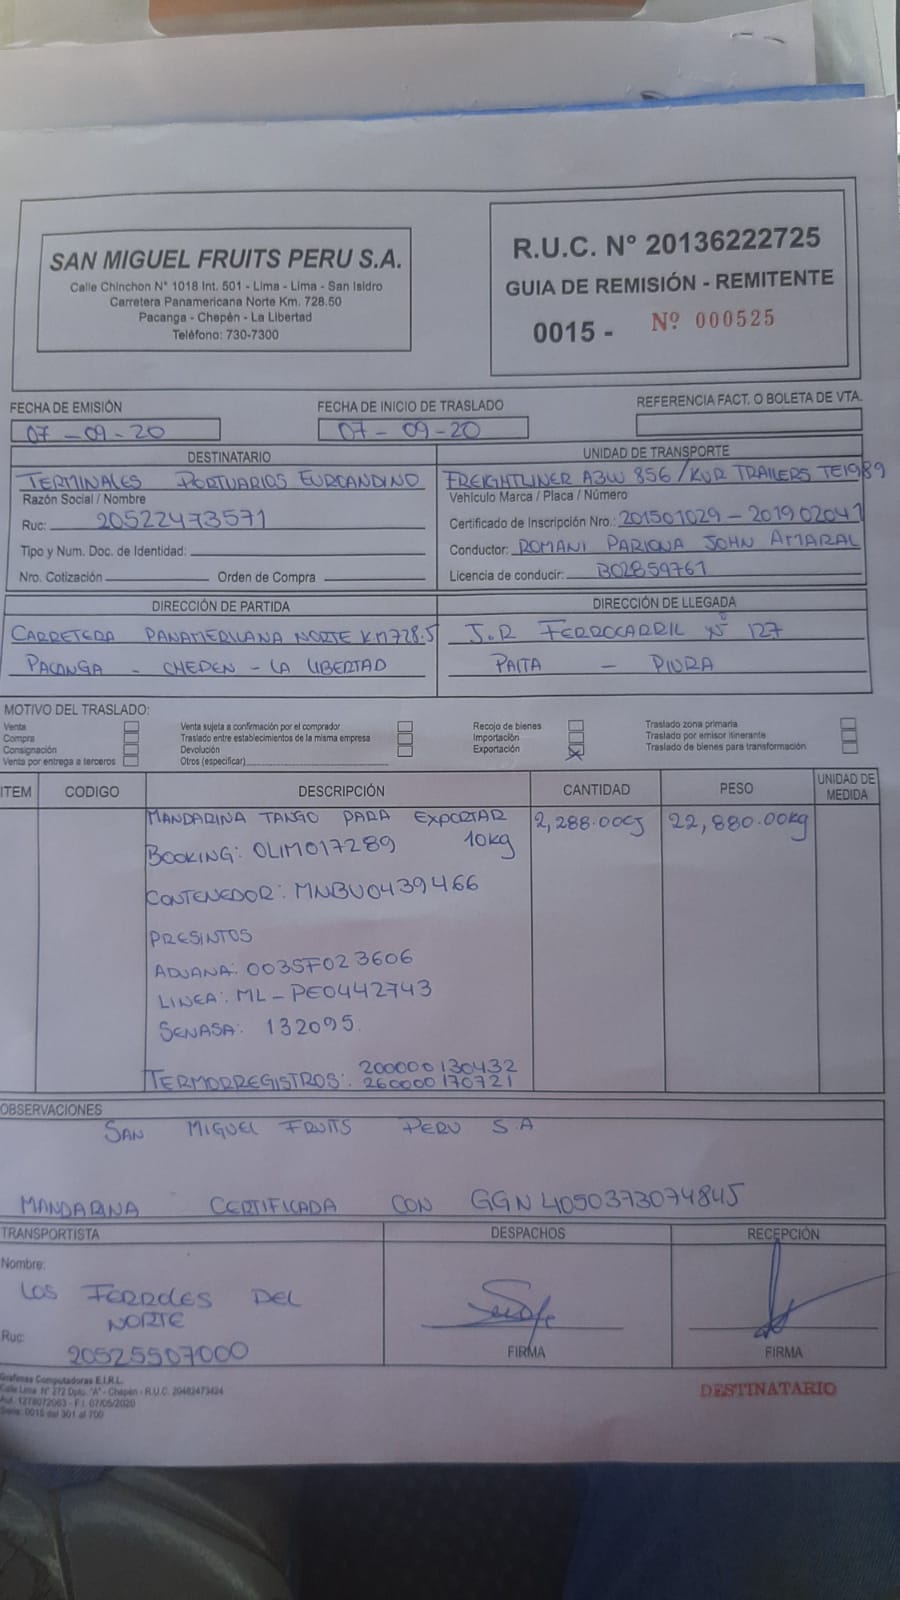 SAN MIGUEL FRUITS PERU S.A.
Calle Chinchon N° 1018 Int. 501 - Lima - Lima - San Isidro
Carretera Panamericana Norte Km. 728.50
Pacanga - Chepén - La Libertad
Teléfono: 730-7300
R.U.C. Nº 20136222725
GUIA DE REMISIÓN - REMITENTE
0015 - Nº 000525
FECHA DE EMISIÓN
07-09-20
FECHA DE INICIO DE TRASLADO
07-09-20
REFERENCIA FACT. O BOLETA DE VTA.
DESTINATARIO
TERMINALES PORTUARIOS EUROANDINO
Razón Social / Nombre
Ruc: 20522473571
Tipo y Num. Doc. de Identidad:
Nro. Cotización Orden de Compra
UNIDAD DE TRANSPORTE
FREIGHTLINER A3W 856 / KUR TRAILERS TE1989
Vehículo Marca / Placa / Número
Certificado de Inscripción Nro.: 201501029 - 201902041
Conductor: ROMANI PARIONA JOHN AMARAL
Licencia de conducir: B02859761
DIRECCIÓN DE PARTIDA
CARRETERA PANAMERICANA NORTE KM728.5
PACANGA - CHEPEN - LA LIBERTAD
DIRECCIÓN DE LLEGADA
J.R FERROCARRIL Nº 127
PAITA - PIURA
MOTIVO DEL TRASLADO:
Venta
Compra
Consignación
Venta por entrega a terceros
Venta sujeta a confirmación por el comprador
Traslado entre establecimientos de la misma empresa
Devolución
Otros (especificar)
Recojo de bienes
Importación
Exportación X
Traslado zona primaria
Traslado por emisor itinerante
Traslado de bienes para transformación
ITEM CODIGO DESCRIPCIÓN CANTIDAD PESO UNIDAD DE MEDIDA
MANDARINA TANGO PARA EXPORTAR 2,288.00CJ 22,880.00kg
BOOKING: OLIM017289 10kg
CONTENEDOR: MNBU0439466
PRESINTOS
ADUANA: 003SF023606
LINEA: ML-PE0442743
SENASA: 132095
TERMORREGISTROS: 200000130432
260000170721
OBSERVACIONES
SAN MIGUEL FRUITS PERU S.A
MANDARINA CERTIFICADA CON GGN 4050373074845
TRANSPORTISTA
Nombre:
LOS FERROLES DEL
NORTE
Ruc:
20525507000
DESPACHOS
FIRMA
RECEPCIÓN
FIRMA
Calle Lima Nº 272 Dpto. "A" - Chepén - R.U.C. 20482473424
Aut. 1278072063 - F.I. 07/05/2020
Serie: 0015 del 301 al 700
DESTINATARIO